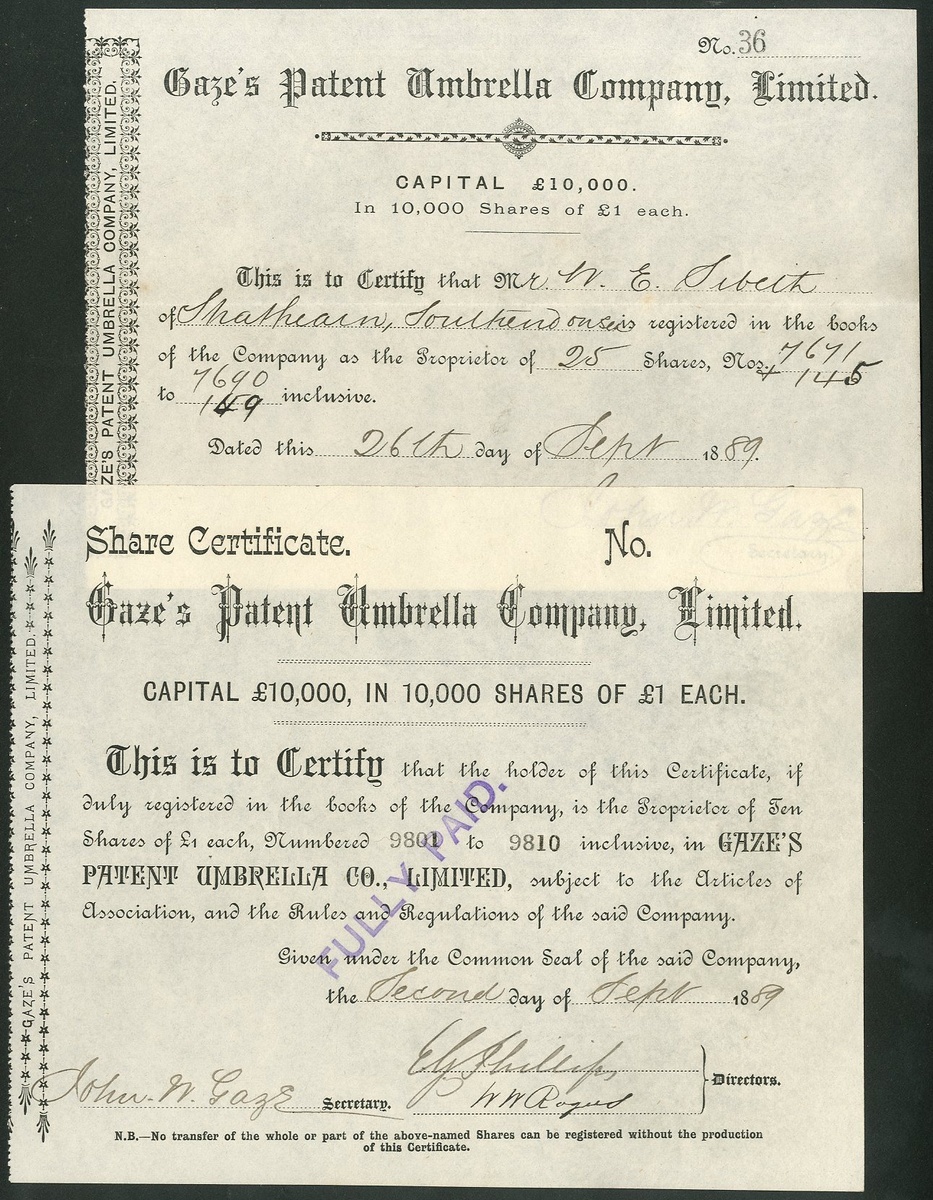 No. 36
Gaze's Patent Umbrella Company, Limited.
CAPITAL £10,000.
In 10,000 Shares of £1 each.
This is to Certify that Mr. W. E. Sibeth
of is registered in the books
of the Company as the Proprietor of 25 Shares, Nos. 7671
+ 145
to 7690
149 inclusive.
Dated this 26th day of Sept 1889.
GAZE'S PATENT UMBRELLA COMPANY, LIMITED.
Secretary
Share Certificate. No.
Gaze's Patent Umbrella Company, Limited.
CAPITAL £10,000, IN 10,000 SHARES OF £1 EACH.
This is to Certify that the holder of this Certificate, if
duly registered in the books of the Company, is the Proprietor of Ten
Shares of £1 each, Numbered 9801 to 9810 inclusive, in GAZE'S
PATENT UMBRELLA CO., LIMITED, subject to the Articles of
Association, and the Rules and Regulations of the said Company.
FULLY PAID.
Given under the Common Seal of the said Company,
the Second day of Sept 1889
Phillips
John. W. Gaze Secretary. Directors.
N.B.—No transfer of the whole or part of the above-named Shares can be registered without the production
of this Certificate.
GAZE'S PATENT UMBRELLA COMPANY, LIMITED.